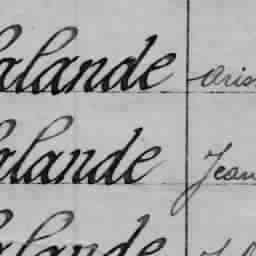 alande Aris
alande Jean
alande